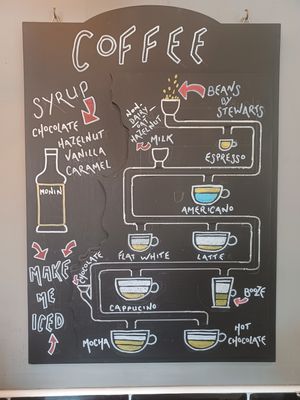 COFFEE
SYRUP
CHOCOLATE
HAZELNUT
VANILLA
CARAMEL
MONIN
MAKE
ME
ICED
BEANS
BY
STEWARTS
NON
DAIRY
OAT
HAZELNUT
MILK
ESPRESSO
AMERICANO
FLAT WHITE
LATTE
CHOCOLATE
CAPPUCINO
BOOZE
MOCHA
HOT
CHOCOLATE